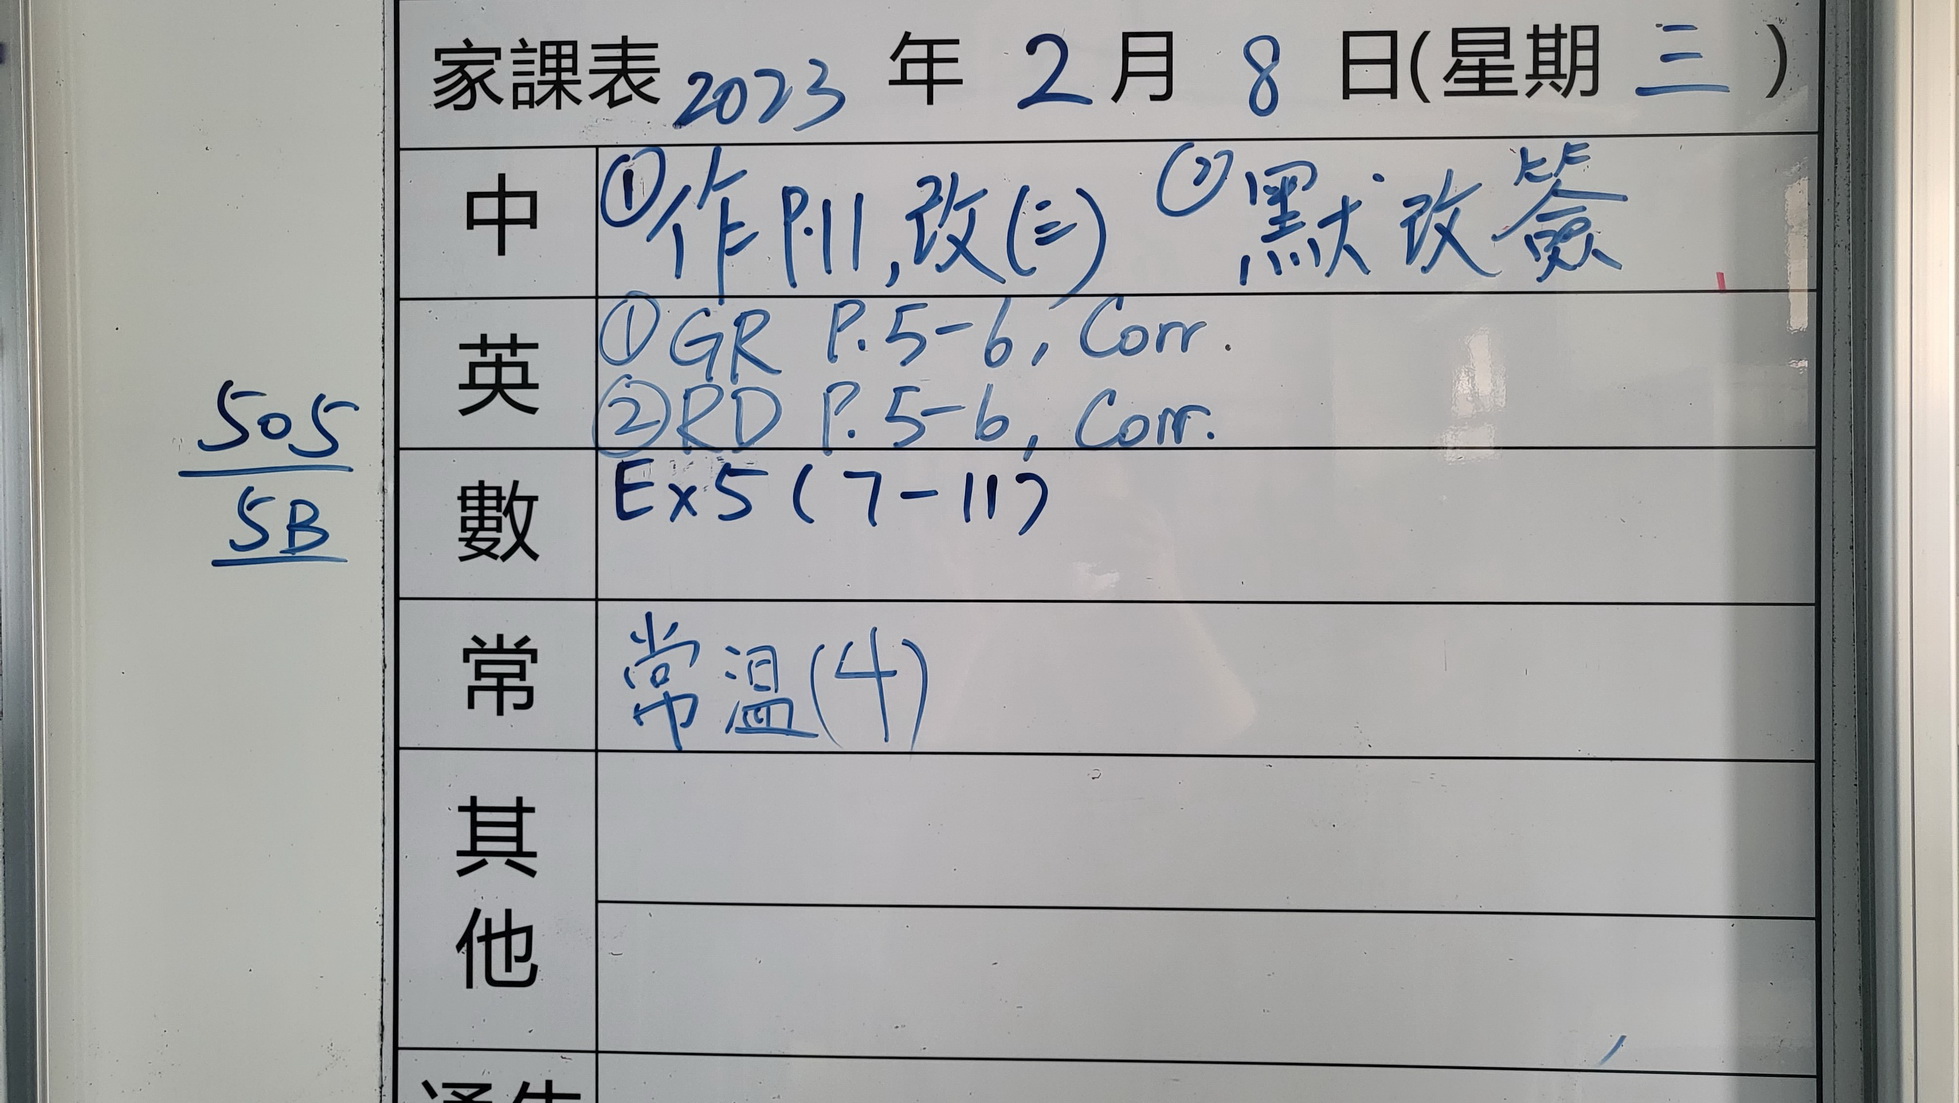 家課表 2023 年 2 月 8 日(星期 三 )
中 ①作P.11,改(三) ②默改簽
英 ①GR P.5-6, Corr.
②RD P.5-6, Corr.
505
5B
數 Ex5(7-11)
常 常溫(4)
其他
通告